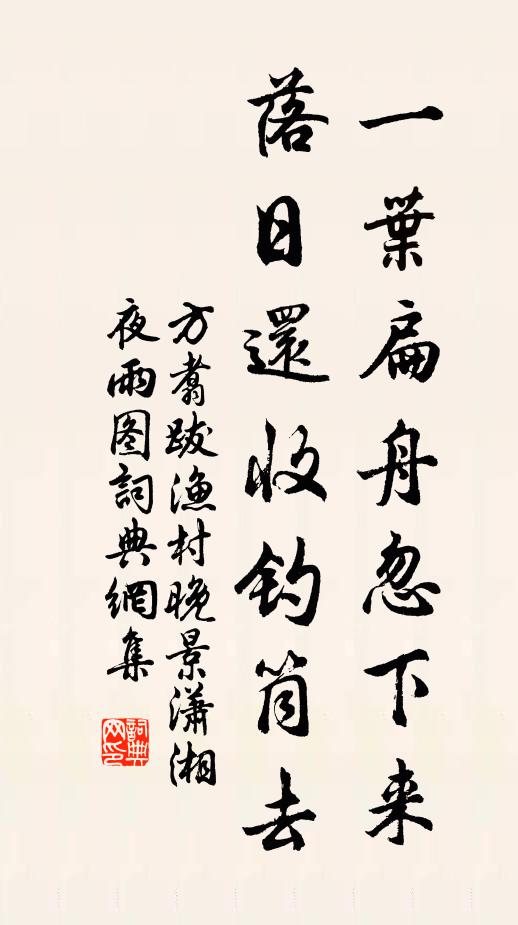 一葉扁舟忽下来
落日還收釣筒去
方翥跋漁村晚景瀟湘
夜雨图詞典網集
詞典网印